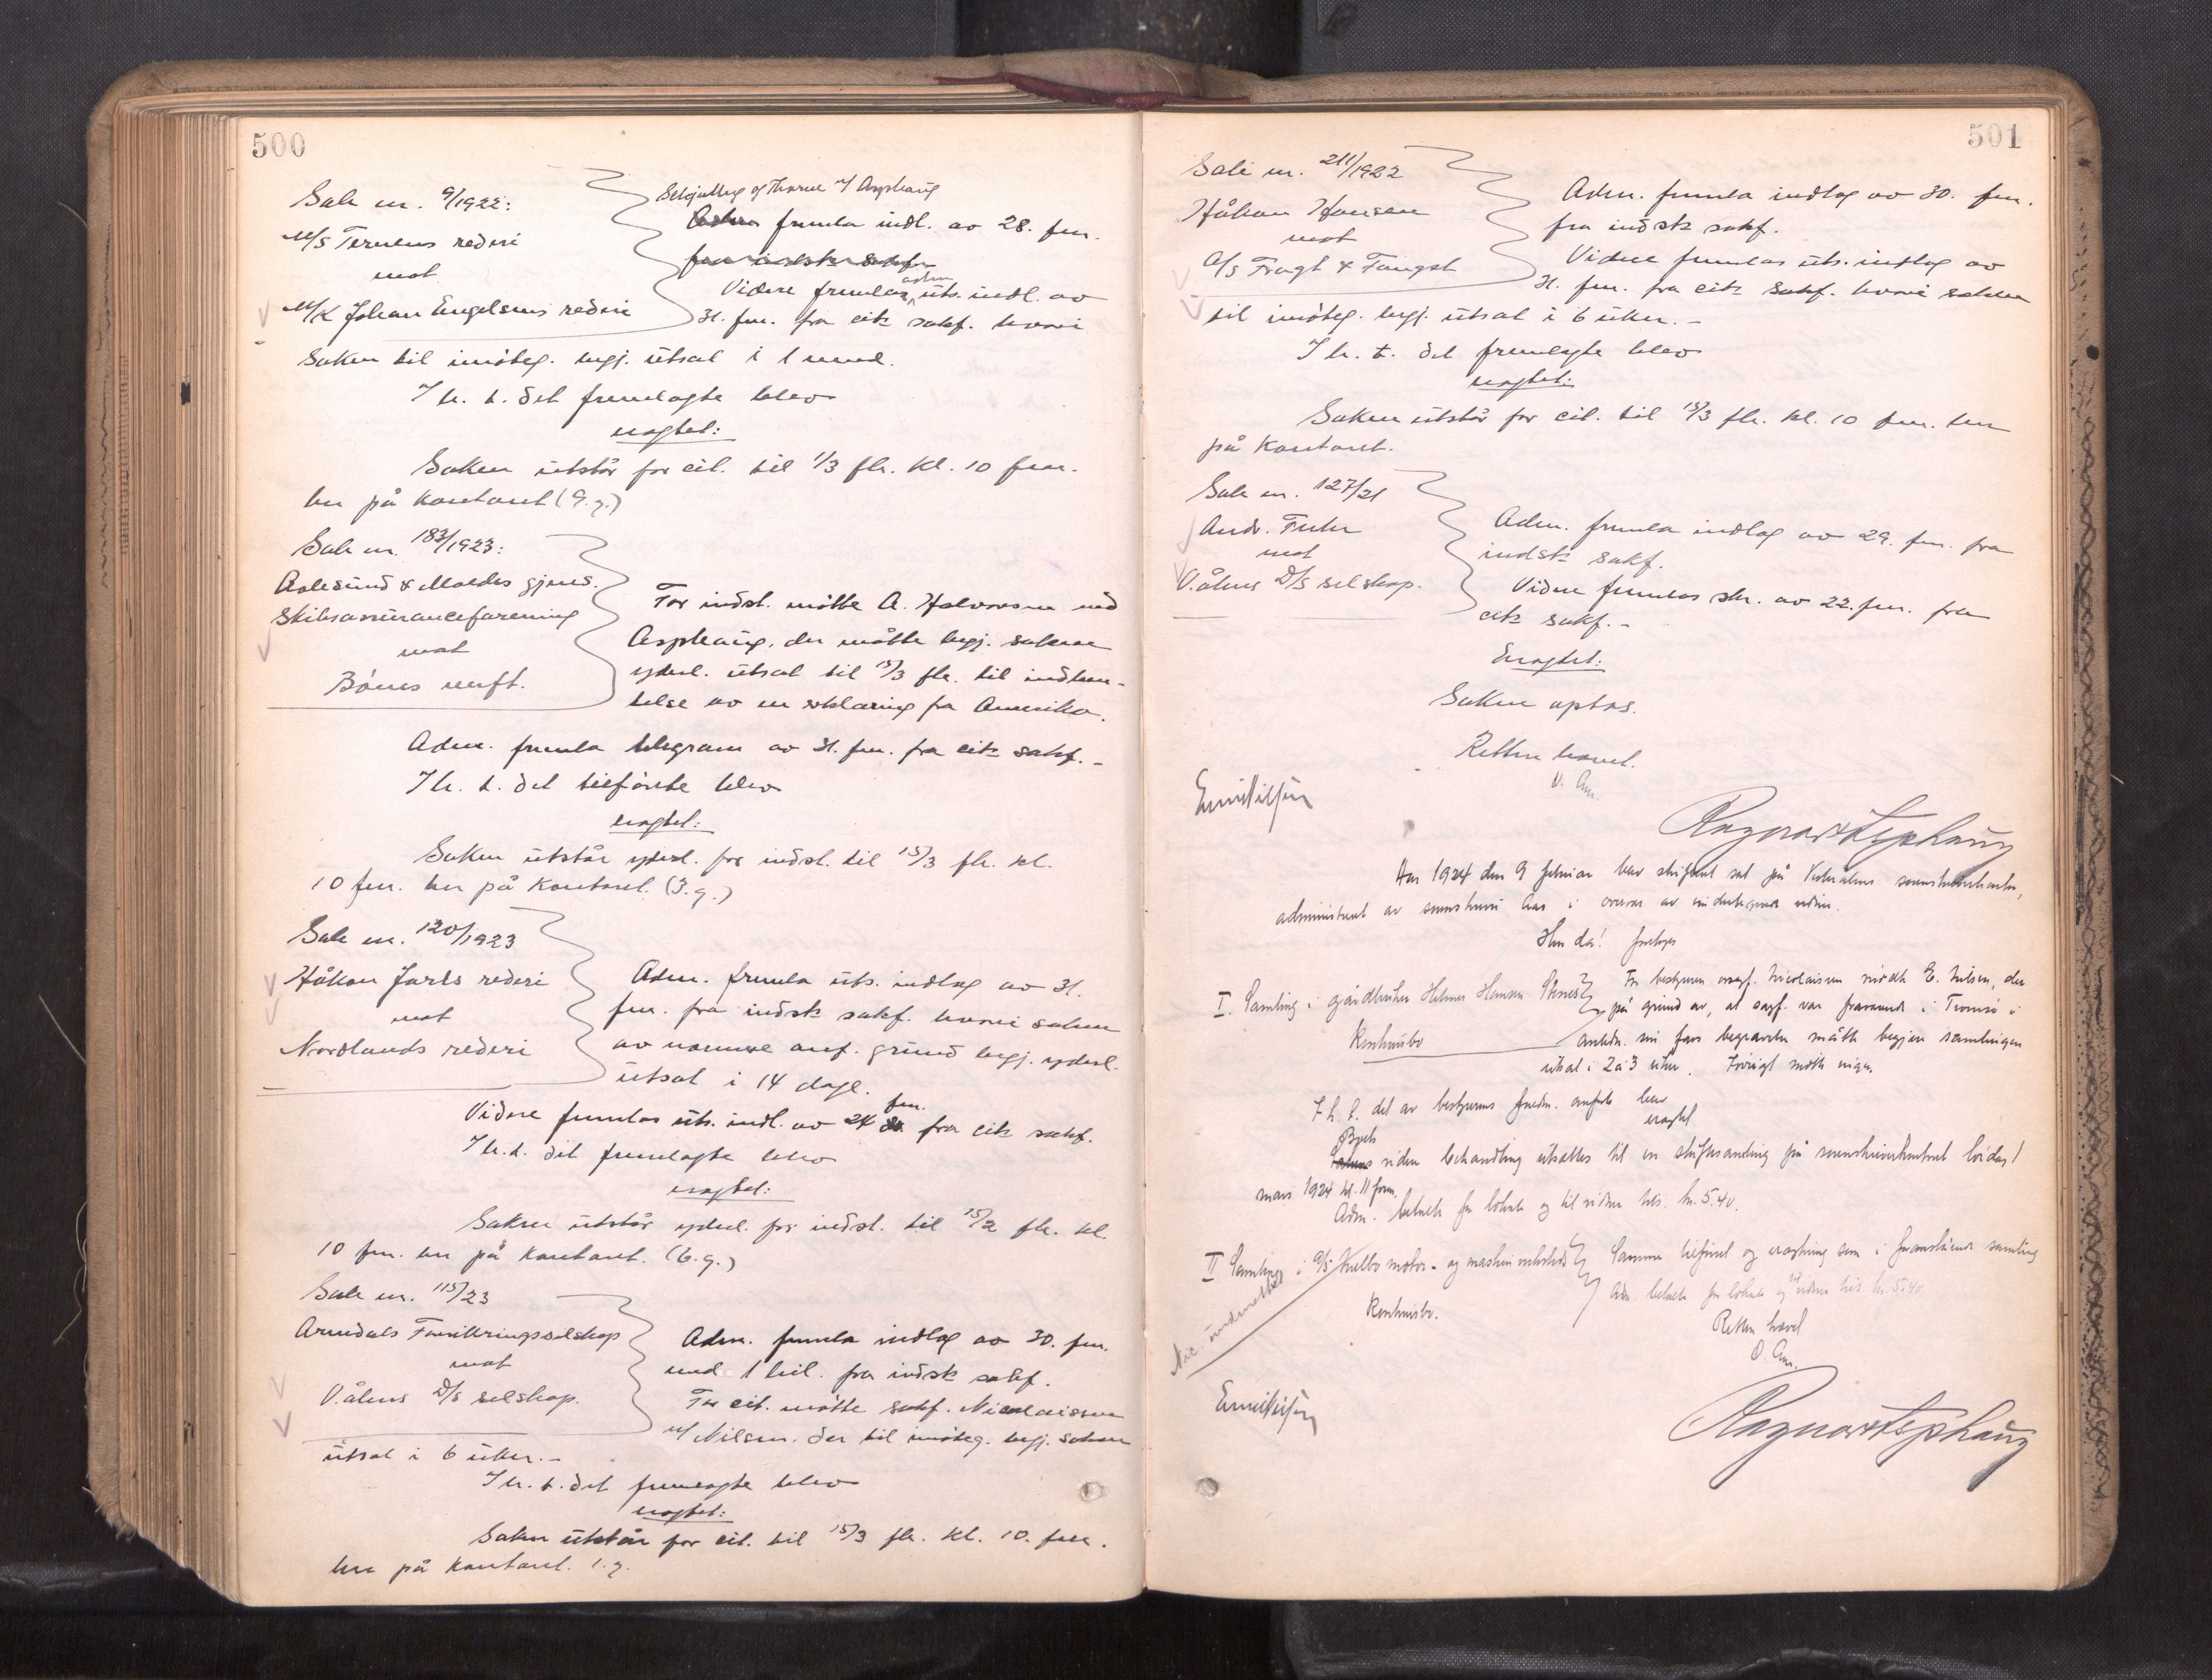 500
Sak nr. 9/1922:
M/S Ternens rederi
mot
M/K Johan Engelsens rederi
Aspehaug
Adm. fremla indl. av 28. fm.
fra indst. sakf.
Videre fremlas adm. uts. indl. av
31. fm. fra citt. sakf. hvori
saken til imøteg. begj. utsat i 1 mnd.
I h. t. det fremlagte blev
eragtet:
Saken utstår for cit. til 1/3 fh. kl. 10 fm.
her på kontoret (9. g.)
Sak nr. 183/1923:
Aalesund & Moldes gjens.
Skibsassuranceforening
mot
Bönes verft.
For indst. møtte A. Halvorsen ved
Aspehaug, der møtte begj. saken
yderl. utsat til 15/3 fh. til indhen-
telse av en erklæring fra Amerika.
Adm. fremla telegram av 31. fm. fra citt. sakf. -
I h. t. det tilførte blev
eragtet:
Saken utstår yderl. for indst. til 15/3 fh. kl.
10 fm. her på kontoret. (3. g.)
Sak nr. 120/1923
Håkon Jarls rederi
mot
Nordlands rederi
Adm. fremla uts. indlæg av 31.
fm. fra indst. sakf. hvori saken
av nærmere anf. grund begj. yderl.
utsat i 14 dage.
Videre fremlas uts. indl. av 24 fm. fra citt. sakf.
I h. t. det fremlagte blev
eragtet:
Saken utstår yderl. for indst. til 15/2 fh. kl.
10 fm. her på kontoret. (6. g.)
Sak nr. 115/23
Arendals Forsikringsselskap
mot
Vålens D/S selskap.
Adm. fremla indlæg av 30. fm.
med 1 bil. fra indst. sakf.
For cit. møtte sakf. Nicolaissen
v/ Nilsen. der til imøteg. begj. saken
utsat i 6 uker. -
I h. t. det fremlagte blev
eragtet:
Saken utstår for cit. til 15/3 fh. kl. 10. fm.
her på kontoret. 1. g.
501
Sak nr. 211/1922
Håkon Hansen
mot
A/S Fragt & Fangst
Adm. fremla indlæg av 30. fm.
fra indst. sakf.
Videre fremlas uts. indlæg av
31. fm. fra citt. sakf. hvori saken
til imøteg. begj. utsat i 6 uker. -
I h. t. det fremlagte blev
eragtet:
Saken utstår for cit. til 15/3 fh. kl. 10 fm. her
på kontoret.
Sak nr. 127/21
Andr.
mot
Vålens D/S selskap.
Adm. fremla indlæg av 29. fm. fra
indst. sakf.
Videre fremlas skr. av 22. fm. fra
citt. sakf. -
Eragtet:
Saken optas.
Retten hævet.
O. Aas.
Ragnar Aspehaug
Aar 1924 den 9 februar blev skifteret sat på Vesterålens sorenskriverkontor,
administrert av sorenskriver Aas i overvær av undertegnede vidner.
Hvor da! foretoges
I. Samling i gårdbruker Helmer Hansen
Konkursbo
For bestyreren overrf. Nicolaissen møtte E. Nilsen, der
på grund av, at sagf. var fraværende i Tromsø i
anledn. sin fars begravelse møtte begjær samlingen
utsat i 2 à 3 uker. Forøvrigt møtte ingen.
I h. t. det av bestyrerens fuldm. anførte blev
eragtet
Boets
videre behandling utsættes til en skiftesamling på sorenskriverkontoret lørdag 1
mars 1924 kl. 11 form.
Adm. betalte for lokale og til vidner tils. kr. 5.40.
II Samling i A/S Melbo motor- og maskinverksted
Konkursbo.
Samme tilførsel og eragtning som i foranstående samling
Adm. betalte for lokale og til vidner tils. kr. 5.40.
Retten hævet
O. Aas.
Ragnar Aspehaug